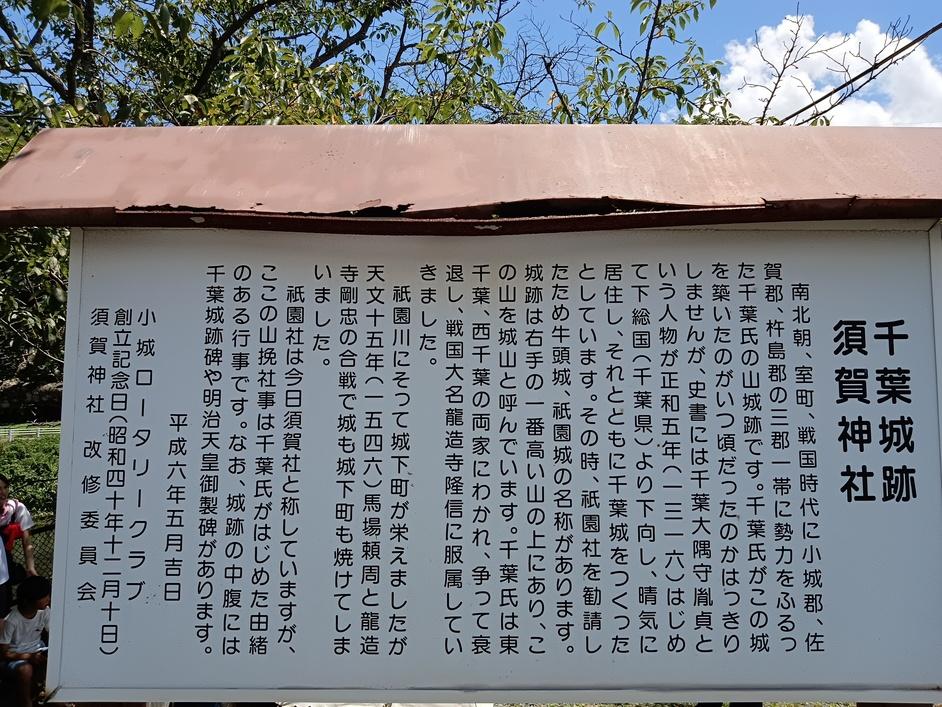 千葉城跡
須賀神社
南北朝、室町、戦国時代に小城郡、佐
賀郡、杵島郡の三郡一帯に勢力をふるっ
た千葉氏の山城跡です。千葉氏がこの城
を築いたのがいつ頃だったのかはっきり
しませんが、史書には千葉大隅守胤貞と
いう人物が正和五年(一三一六)はじめ
て下総国(千葉県)より下向し、晴気に
居住し、それとともに千葉城をつくった
としています。その時、祇園社を勧請し
たため牛頭城、祇園城の名称があります。
城跡は右手の一番高い山の上にあり、こ
の山を城山と呼んでいます。千葉氏は東
千葉、西千葉の両家にわかれ、争って衰
退し、戦国大名龍造寺隆信に服属してい
きました。
祇園川にそって城下町が栄えましたが
天文十五年(一五四六)馬場頼周と龍造
寺剛忠の合戦で城も城下町も焼けてしま
いました。
祇園社は今日須賀社と称していますが、
ここの山挽社事は千葉氏がはじめた由緒
のある行事です。なお、城跡の中腹には
千葉城跡碑や明治天皇御製碑があります。
平成六年五月吉日
小城ロータリークラブ
創立記念日(昭和四十年十二月十日)
須賀神社 改修委員会